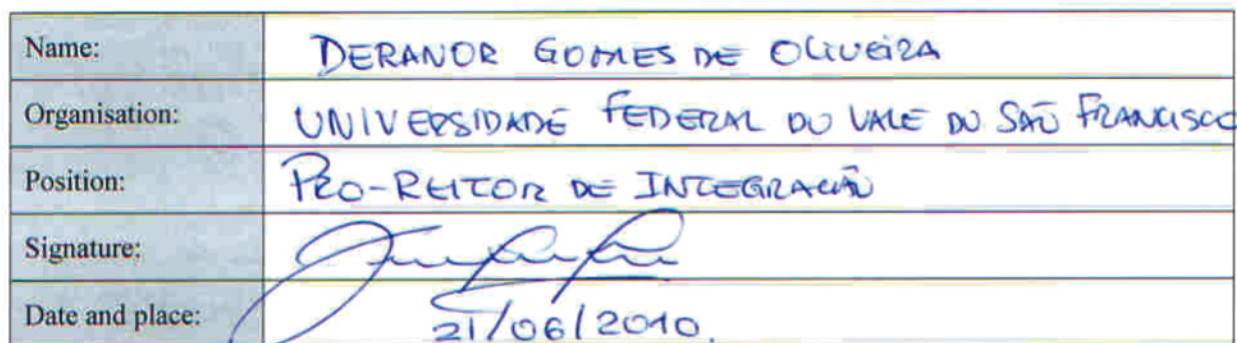 Name: DERANOR GOMES DE OLIVEIRA
Organisation: UNIVERSIDADE FEDERAL DO VALE DO SÃO FRANCISCO
Position: PRO-REITOR DE INTEGRAÇÃO
Signature:
Date and place: 21/06/2010.